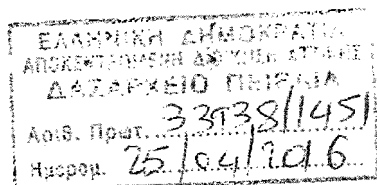 ΕΛΛΗΝΙΚΗ ΔΗΜΟΚΡΑΤΙΑ
ΑΠΟΚΕΝΤΡΩΜΕΝΗ ΔΙΟΙΚΗΣΗ ΑΤΤΙΚΗΣ
ΔΑΣΑΡΧΕΙΟ ΠΕΙΡΑΙΑ
Αριθ. Πρωτ.
Ημερομ. 25/04/2016